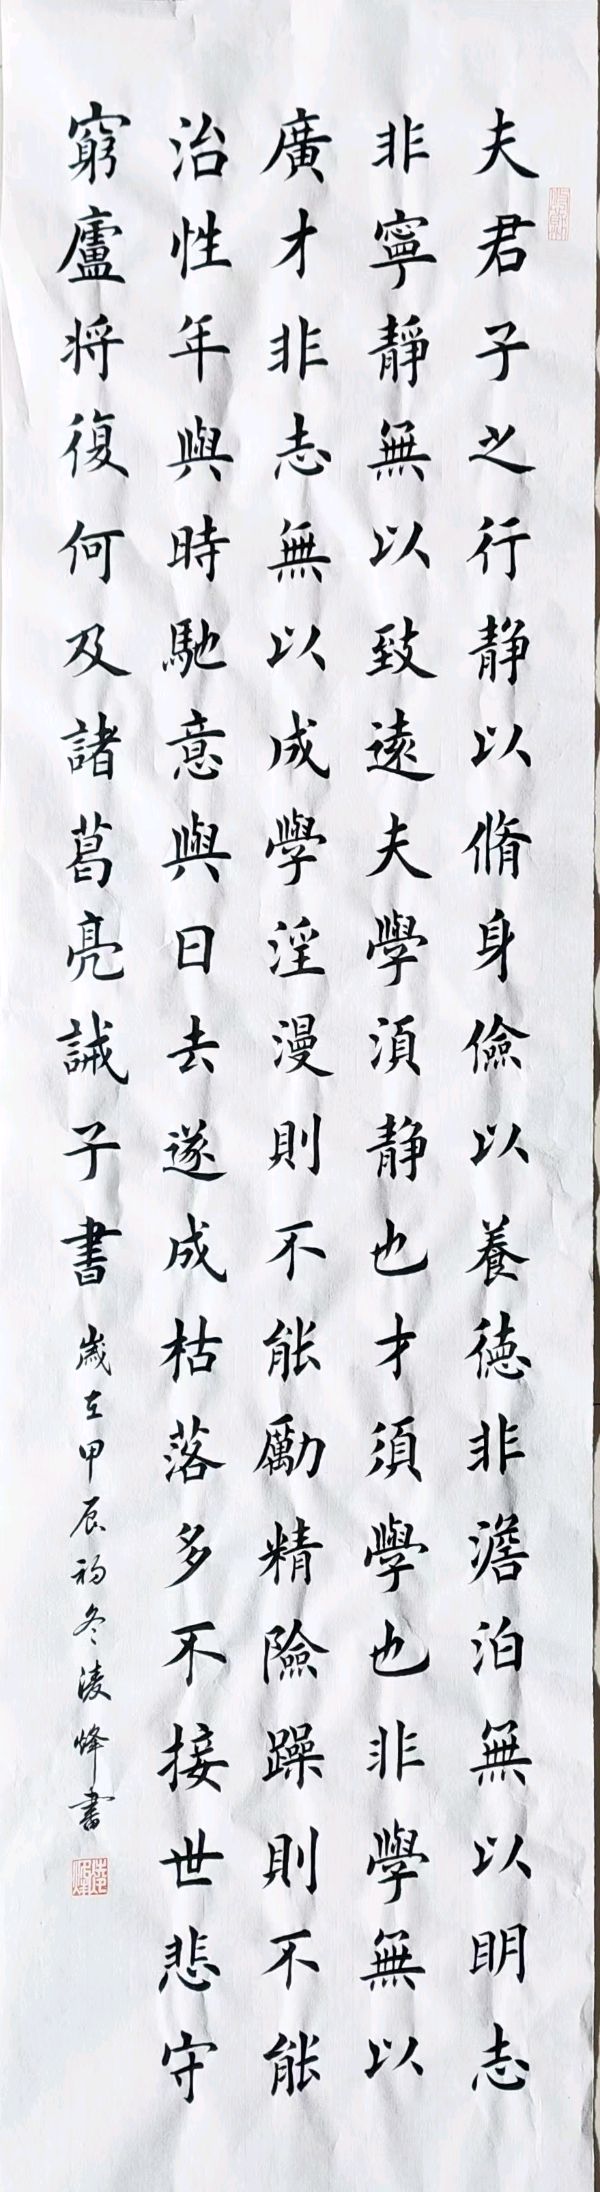 夫君子之行静以脩身儉以養德非澹泊無以明志
非寧靜無以致遠夫學須静也才須學也非學無以
廣才非志無以成學淫漫則不能勵精險躁則不能
治性年與時馳意與日去遂成枯落多不接世悲守
窮廬将復何及諸葛亮誡子書
歲在甲辰初冬凌烽書